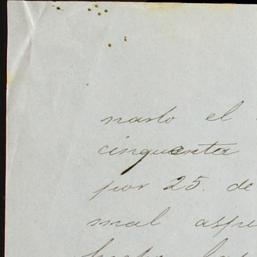 narlo el
cinquenta
por 25. de
mal aspe